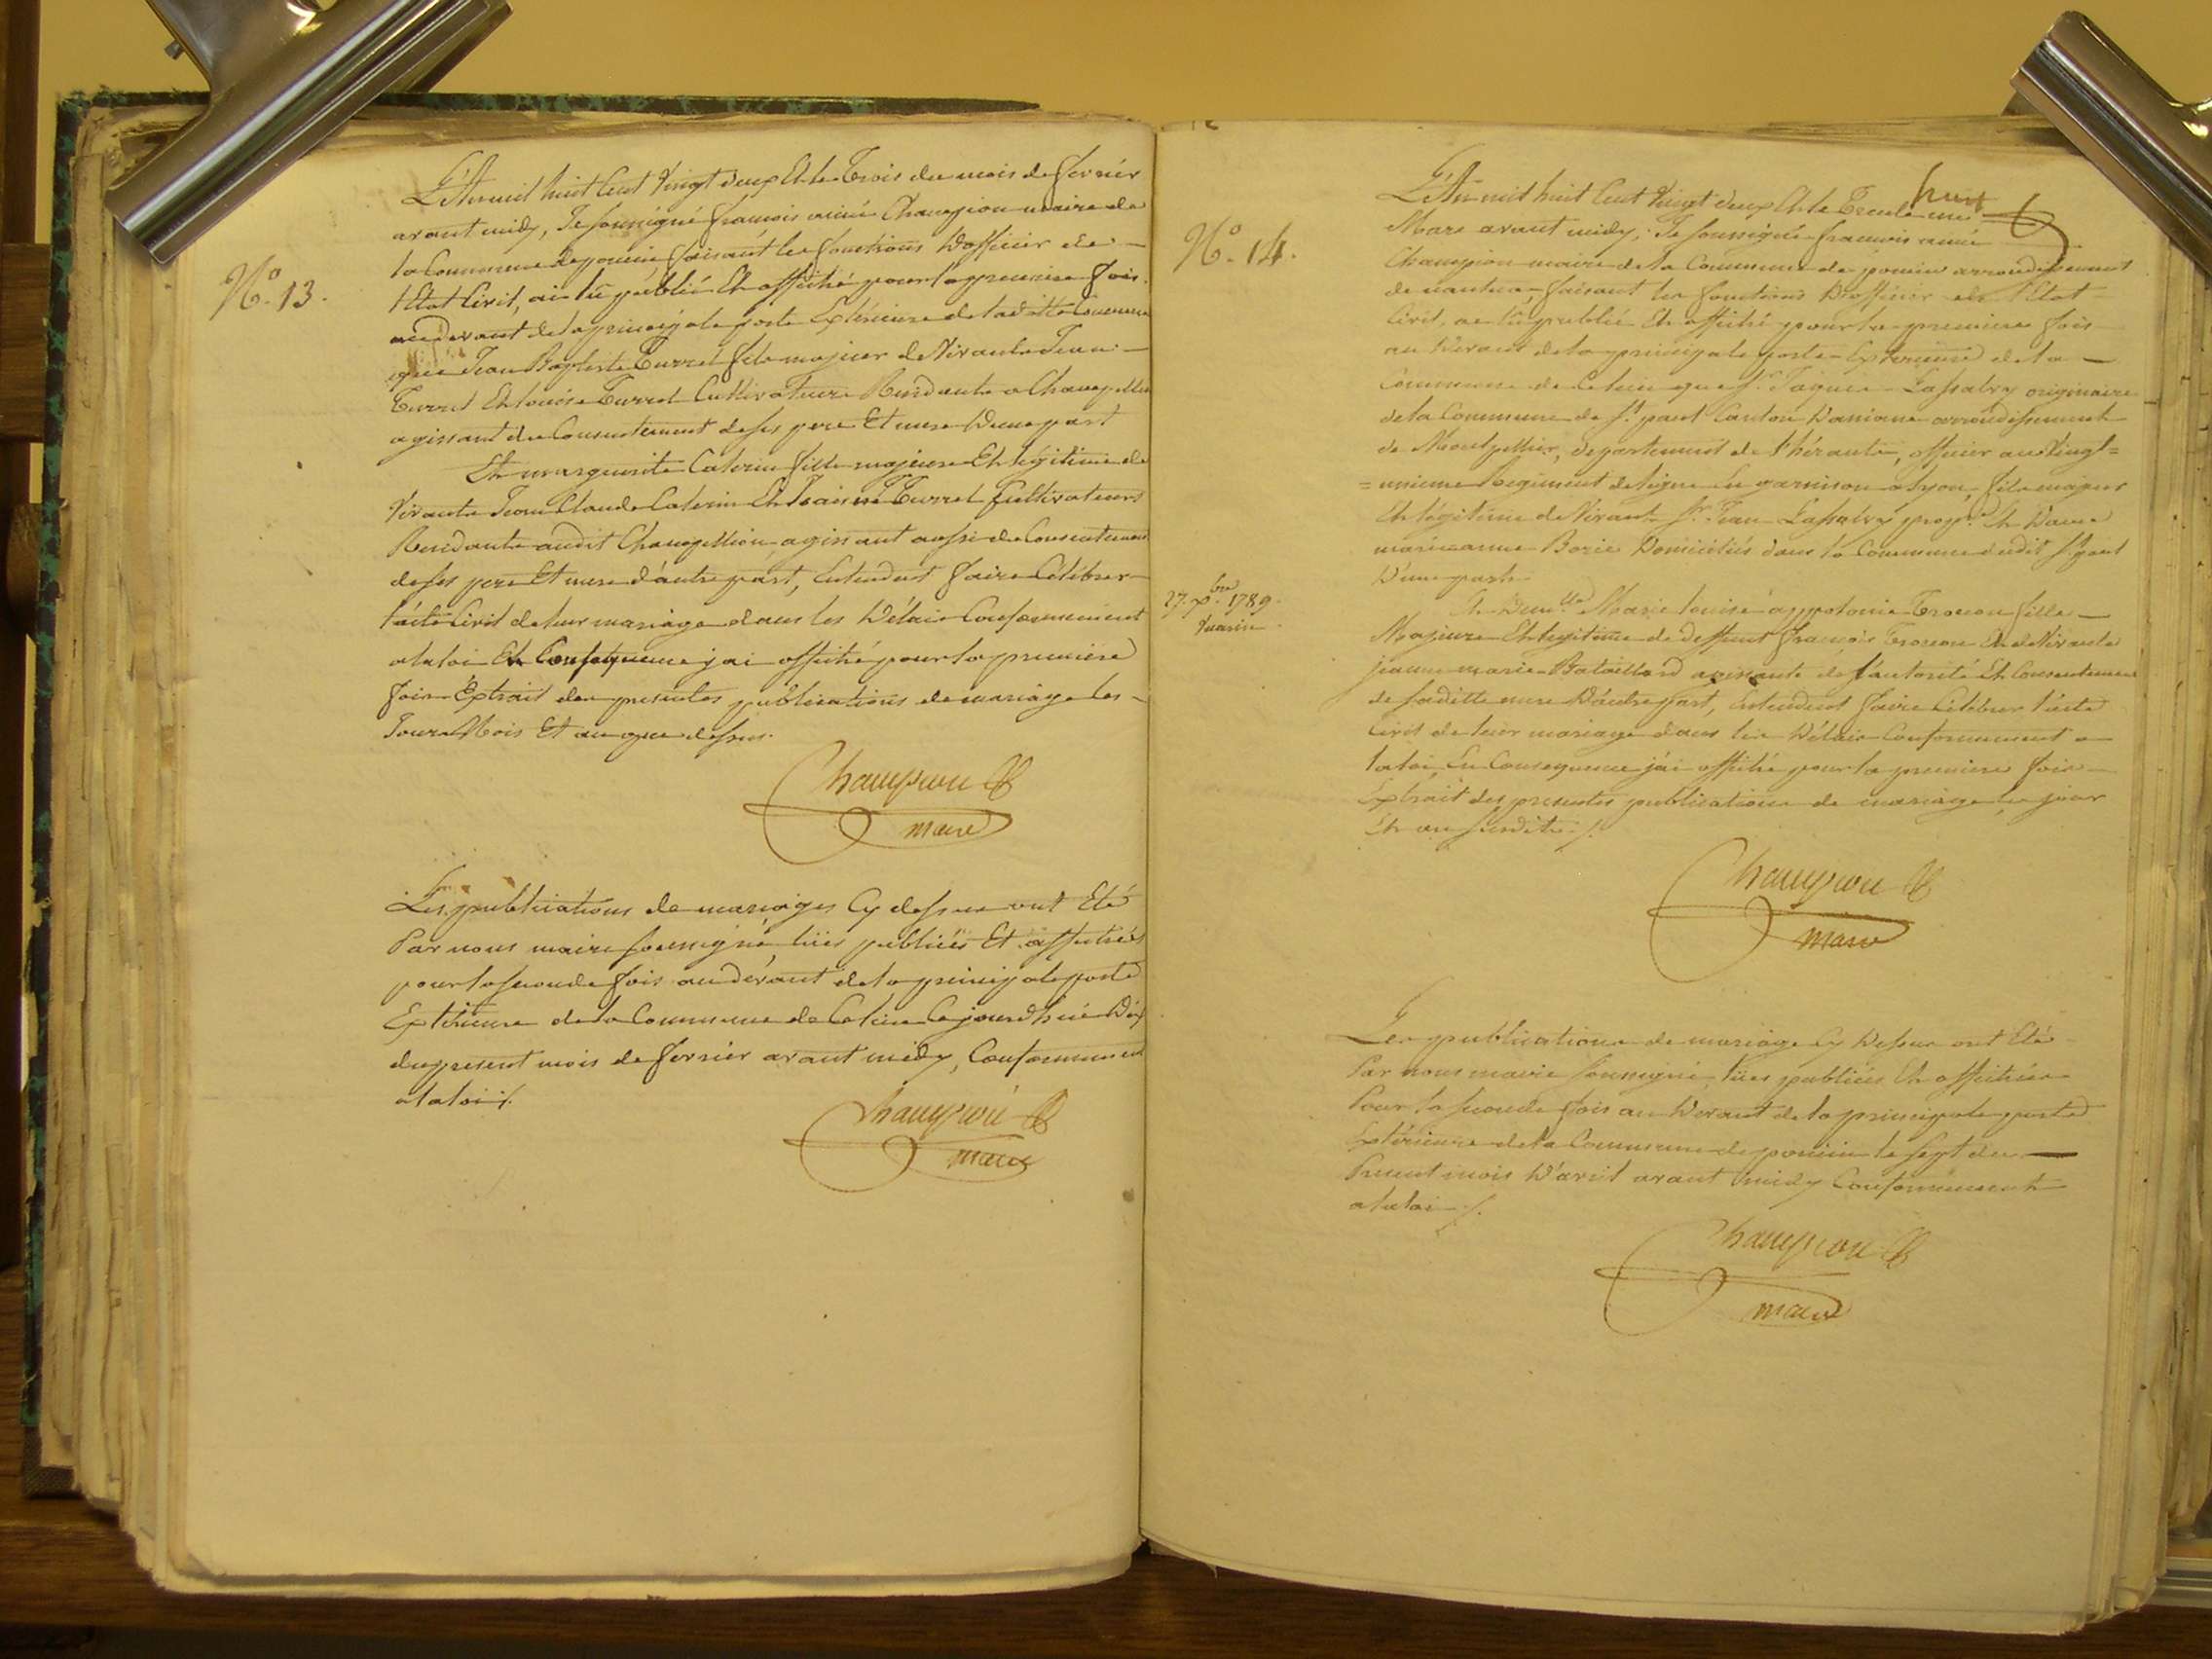 N.o 13.
L'An mil huit Cent Vingt deux Et le Trois du mois de fevrier
avant midy, Je soussigné françois aimé Champion maire de
la Commune de poncin faisant les fonctions D'officier de
l'Etat Civil, ai lû publié Et affiché pour la premiere fois
au devant de la principale porte Extérieure de laditte Commune
que Jean Baptiste Turrel fils majeur de Vivants Jean
Turrel Et louise Turrel Cultivateurs Residants a Champeillon
agissant du Consentement de ses pere Et mere D'une part
Et marguerite Caterin fille majeure Et légitime de
Vivants Jean Claude Caterin Et Turrel Cultivateurs
Residants audit Champeillon agissant aussi du Consentement
de ses pere Et mere d'autre part, Entendent faire Célébrer
l'acte Civil de leur mariage dans les Délais Conformement
a la loi En Consequence j'ai affiché pour la premiere
fois Extrait des presentes publications de mariage les
Jour Mois Et an que dessus.
Champion
maire
Les publications de mariages Cy dessus ont Eté
Par nous maire soussigné, lües publiées Et affichées
pour la seconde fois au dévant de la principale porte
Extérieure de la Commune de Celui Ce jourd'hui Dix
du present mois de fevrier avant midy, Conformement
a la loi ./.
Champion
maire
N.o 14.
L'An mil huit Cent Vingt deux Et le Trente un huit
Mars avant midy, Je soussigné françois aimé
Champion maire de la Commune de poncin arrondissement
de nantua, faisant les fonctions D'officier de l'Etat
Civil, ai lû publié Et affiché pour la premiere fois
au Devant de la principale porte Extérieure de la
Commune de Celui que Sr. Lassalvy originaire
de la Commune de St. paul Canton D'aniane arrondissement
de Montpellier, département de l'hérault, officier au Vingt=
=unieme Regiment de ligne En garnison a Lyon, fils majeur
Et légitime de Vivants Sr. Jean Lassalvy propr. Et Dame
marianne Borie Domiciliés dans la Commune dudit St. paul
D'une part.
27. xbre 1789.
Et Demlle Marie louise appolonie Trocon fille
Majeure Et legitime de Deffunt françois Trocon Et de Vivante
jeanne marie Bataillard agissante de l'autorité Et Consentement
de saditte mere D'autre part, Entendent faire Célébrer l'acte
Civil de leur mariage dans les Délais Conformement a
la loi, En Consequence j'ai affiché pour la premiere fois
Extrait des presentes publications de mariage les jour
Et an susdits ./.
Champion
maire
Les publications de mariage Cy Dessus ont Eté
Par nous maire soussigné, lües publiées Et affichées
Pour la seconde fois au Devant de la principale porte
Extérieure de la Commune de poncin le sept du
Present mois D'avril avant midy Conformement
a la loi ./.
Champion
maire